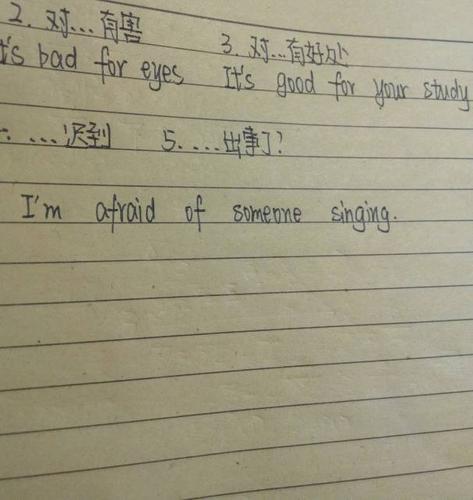 2. 对...有害 3. 对...有好处
t's bad for eyes It's good for your study
...迟到 5. ....出事了?
I'm afraid of someone singing.